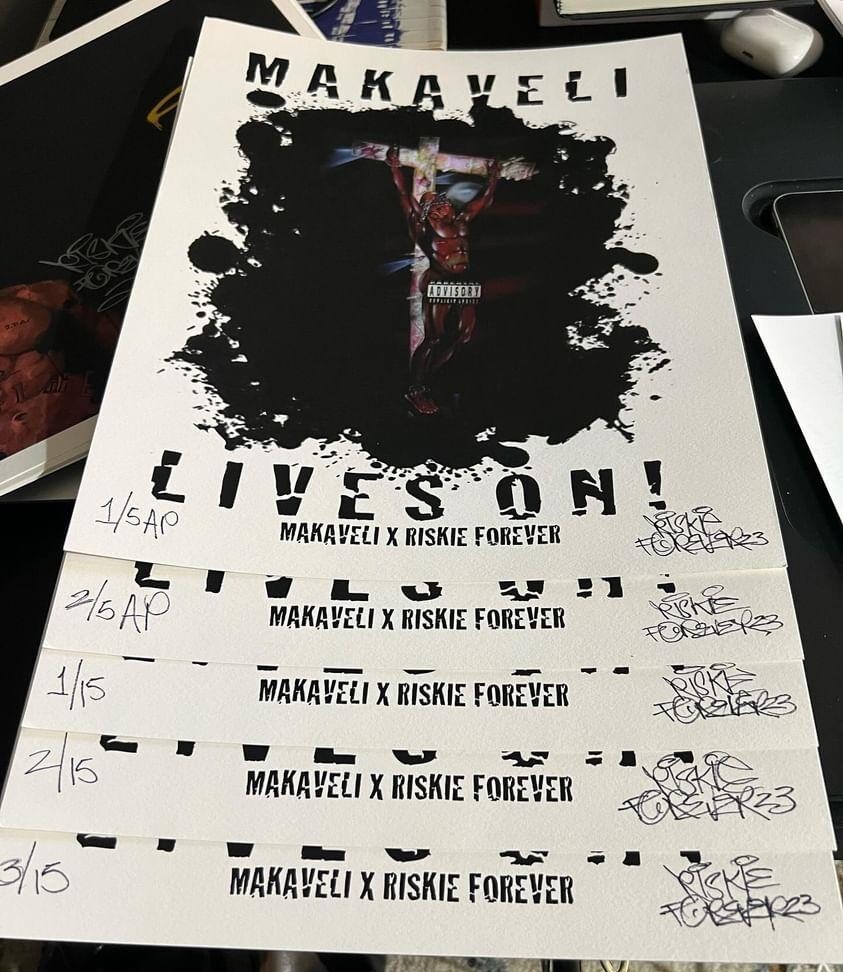 MAKAVELI
PARENTAL
ADVISORY
EXPLICIT LYRICS
LIVES ON!
MAKAVELI X RISKIE FOREVER
1/5 AP
RISKIE
FOREVER23
2/5 AP
MAKAVELI X RISKIE FOREVER
RISKIE
FOREVER23
1/15
MAKAVELI X RISKIE FOREVER
RISKIE
FOREVER23
2/15
MAKAVELI X RISKIE FOREVER
RISKIE
FOREVER23
3/15
MAKAVELI X RISKIE FOREVER
RISKIE
FOREVER23
RISKIE